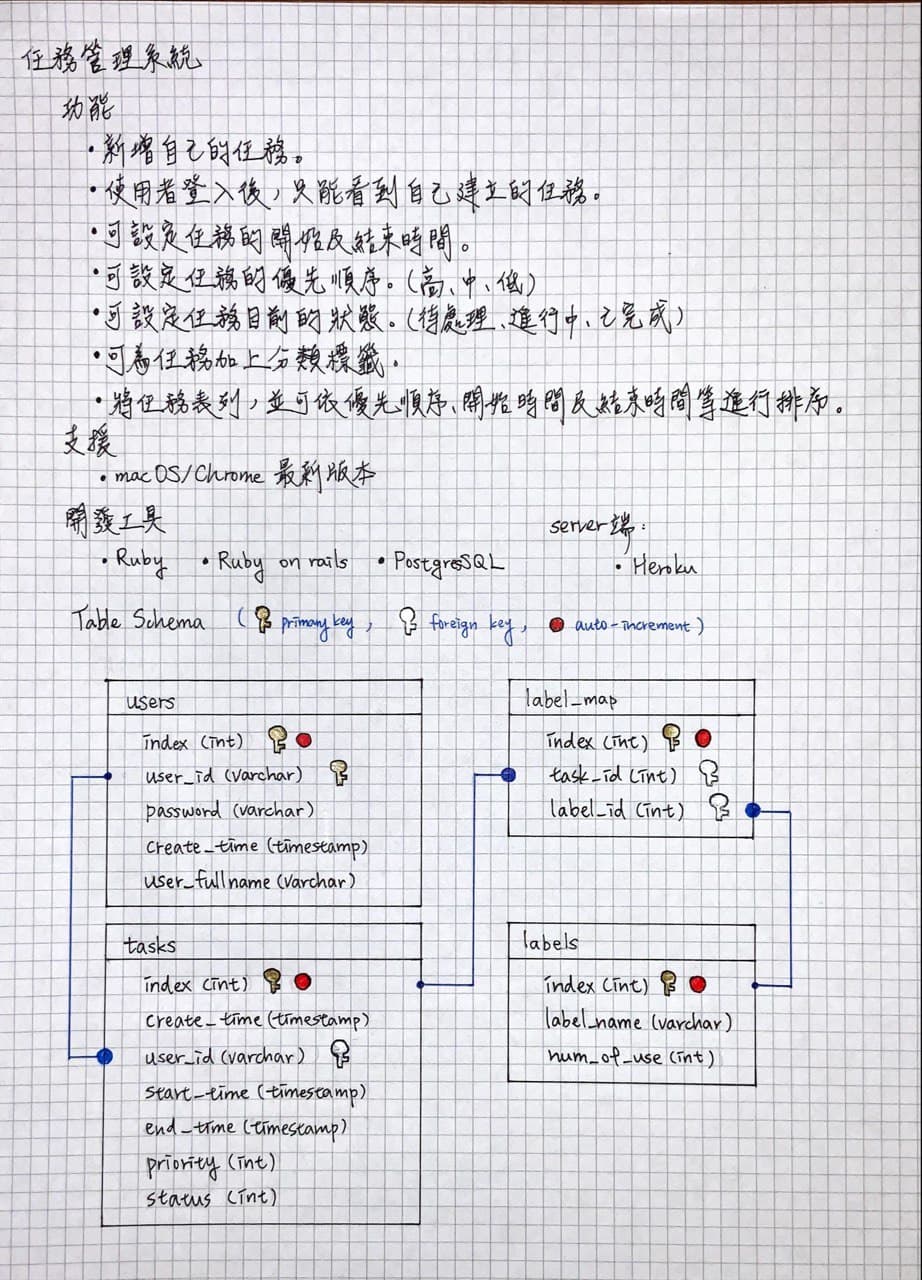 任務管理系統
功能
・新增自己的任務。
・使用者登入後，只能看到自己建立的任務。
・可設定任務的開始及結束時間。
・可設定任務的優先順序。(高、中、低)
・可設定任務目前的狀態。(待處理、進行中、已完成)
・可為任務加上分類標籤。
・將任務表列，並可依優先順序、開始時間及結束時間等進行排序。
支援
・macOS/Chrome 最新版本
開發工具
・Ruby ・Ruby on rails ・PostgresSQL
server端:
・Heroku
Table Schema ( primary key, foreign key, auto-increment)
users
index (int)
user_id (varchar)
password (varchar)
create_time (timestamp)
user_fullname (varchar)
tasks
index (int)
create_time (timestamp)
user_id (varchar)
start_time (timestamp)
end_time (timestamp)
priority (int)
status (int)
label_map
index (int)
task_id (int)
label_id (int)
labels
index (int)
label_name (varchar)
num_of_use (int)